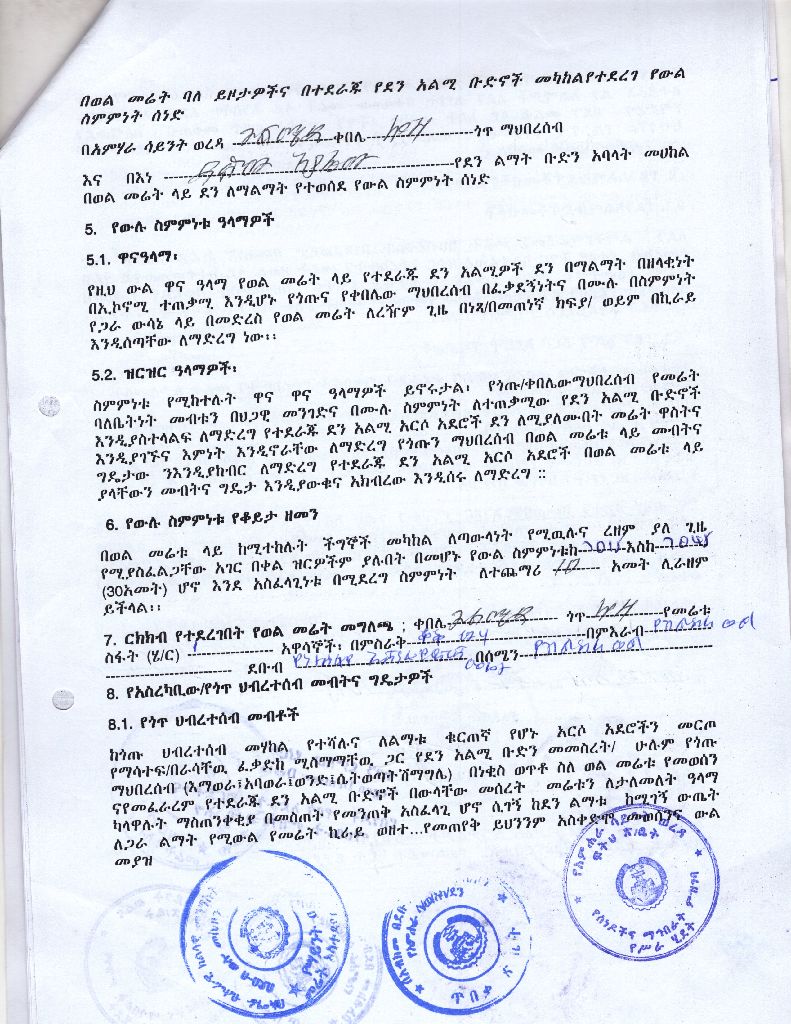 በወል መሬት ባለ ይዞታዎችና በተደራጁ የደን አልሚ ቡድኖች መካከልየተደረገ የውል
ስምምነት ሰነድ
በአምሃራ ሳይንት ወረዳ ቀበሌ ጎጥ ማህበረሰብ
እና በእነ የደን ልማት ቡድን አባላት መሀከል
በወል መሬት ላይ ደን ለማልማት የተወሰደ የውል ስምምነት ሰነድ
5. የውሉ ስምምነቱ ዓላማዎች
5.1. ዋናዓላማ፡
የዚህ ውል ዋና ዓላማ የወል መሬት ላይ የተደራጁ ደን አልሚዎች ደን በማልማት በዘላቂነት
በኢኮኖሚ ተጠቃሚ እንዲሆኑ የጎጡና የቀበሌው ማህበረሰብ በፈቃደኝነትና በሙሉ በስምምነት
የጋራ ውሳኔ ላይ በመድረስ የወል መሬት ለረዥም ጊዜ በነጻ/በመጠነኛ ክፍያ/ ወይም በኪራይ
እንዲሰጣቸው ለማድረግ ነው፡፡
5.2. ዝርዝር ዓላማዎች፡
ስምምነቱ የሚከተሉት ዋና ዋና ዓላማዎች ይኖሩታል፣ የጎጡ/ቀበሌውማህበረሰብ የመሬት
ባለቤትነት መብቱን በህጋዊ መንገድና በሙሉ ስምምነት ለተጠቃሚው የደን አልሚ ቡድኖች
እንዲያስተላልፍ ለማድረግ የተደራጁ ደን አልሚ አርሶ አደሮች ደን ለሚያለሙበት መሬት ዋስትና
እንዲያገኙና እምነት እንዲኖራቸው ለማድረግ የጎጡን ማህበረሰብ በወል መሬቱ ላይ መብትና
ግዴታው ንእንዲያከብር ለማድረግ የተደራጁ ደን አልሚ አርሶ አደሮች በወል መሬቱ ላይ
ያላቸውን መብትና ግዴታ እንዲያውቁና አክብረው እንዲሰሩ ለማድረግ ።
6. የውሉ ስምምነቱ የቆይታ ዘመን
በወል መሬቱ ላይ ከሚተከሉት ችግኞች መካከል ለጣውላነት የሚዉሉና ረዘም ያለ ጊዜ
የሚያስፈልጋቸው አገር በቀል ዝርዎችም ያሉበት በመሆኑ የውል ስምምነቱከ እስከ
(30አመት) ሆኖ እንደ አስፈላጊነቱ በሚደረግ ስምምነት ለተጨማሪ 10 አመት ሊራዘም
ይችላል፡፡
7. ርክክብ የተደረገበት የወል መሬት መግለጫ ; ቀበሌ ጎጥ የመሬቱ
ስፋት (ሄ/ር) አዋሳኞች፡ በምስራቅ በምእራብ
ደቡብ በሰሜን
8. የአስረካቢው/የጎጥ ህብረተሰብ መብትና ግዴታዎች
8.1. የጎጥ ህብረተሰብ መብቶች
ከጎጡ ህብረተሰብ መሃከል የተሻሉና ለልማቱ ቁርጠኛ የሆኑ አርሶ አደሮችን መርጦ
የማሳተፍ/በራሳቸዉ ፈቃድከ ሚስማማቸዉ ጋር የደን አልሚ ቡድን መመስረት/ ሁሉም የጎጡ
ማህበረሰብ (እማወራ፤አባወራ፤ወንድ፤ሴትወጣትሽማግሌ) በነቂስ ወጥቶ ስለ ወል መሬቱ የመወሰን
ናየመፈራረም የተደራጁ ደን አልሚ ቡድኖች በውላቸው መሰረት መሬቱን ለታለመለት ዓላማ
ካላዋሉት ማስጠንቀቂያ በመስጠት የመንጠቅ አስፈላጊ ሆኖ ሲገኝ ከደን ልማቱ ከሚገኝ ውጤት
ለጋራ ልማት የሚውል የመሬት ኪራይ ወዘተ...የመጠየቅ ይህንንም አስቀድሞ መወሰንና ውል
መያዝ